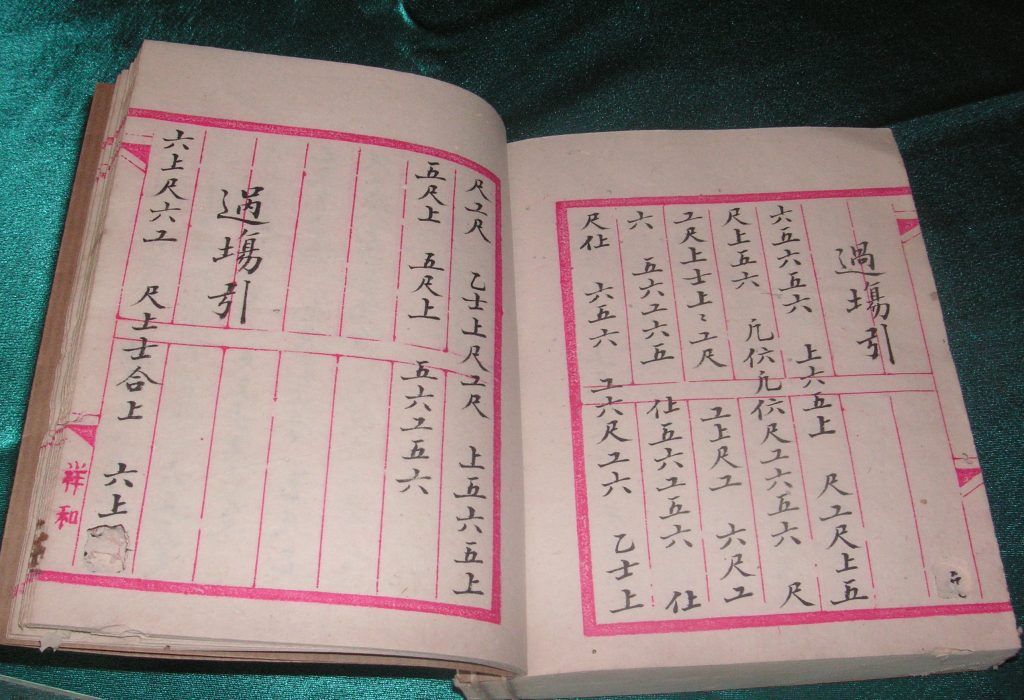 過塲引
六五六五六 上六五上 尺工尺上五
尺上五六 凢㐲凢㐲尺工六五六 尺
工尺上士上〻工尺 工上尺工 六尺工
六 五六工六五 仩五六工五六 仩
尺仩 六五六 工六尺工六 乙士上
尺工尺 乙士上尺工尺 上五六五上
五尺上 五尺上 五六工五六
過塲引
六上尺六工 尺上士合上 六上
祥和